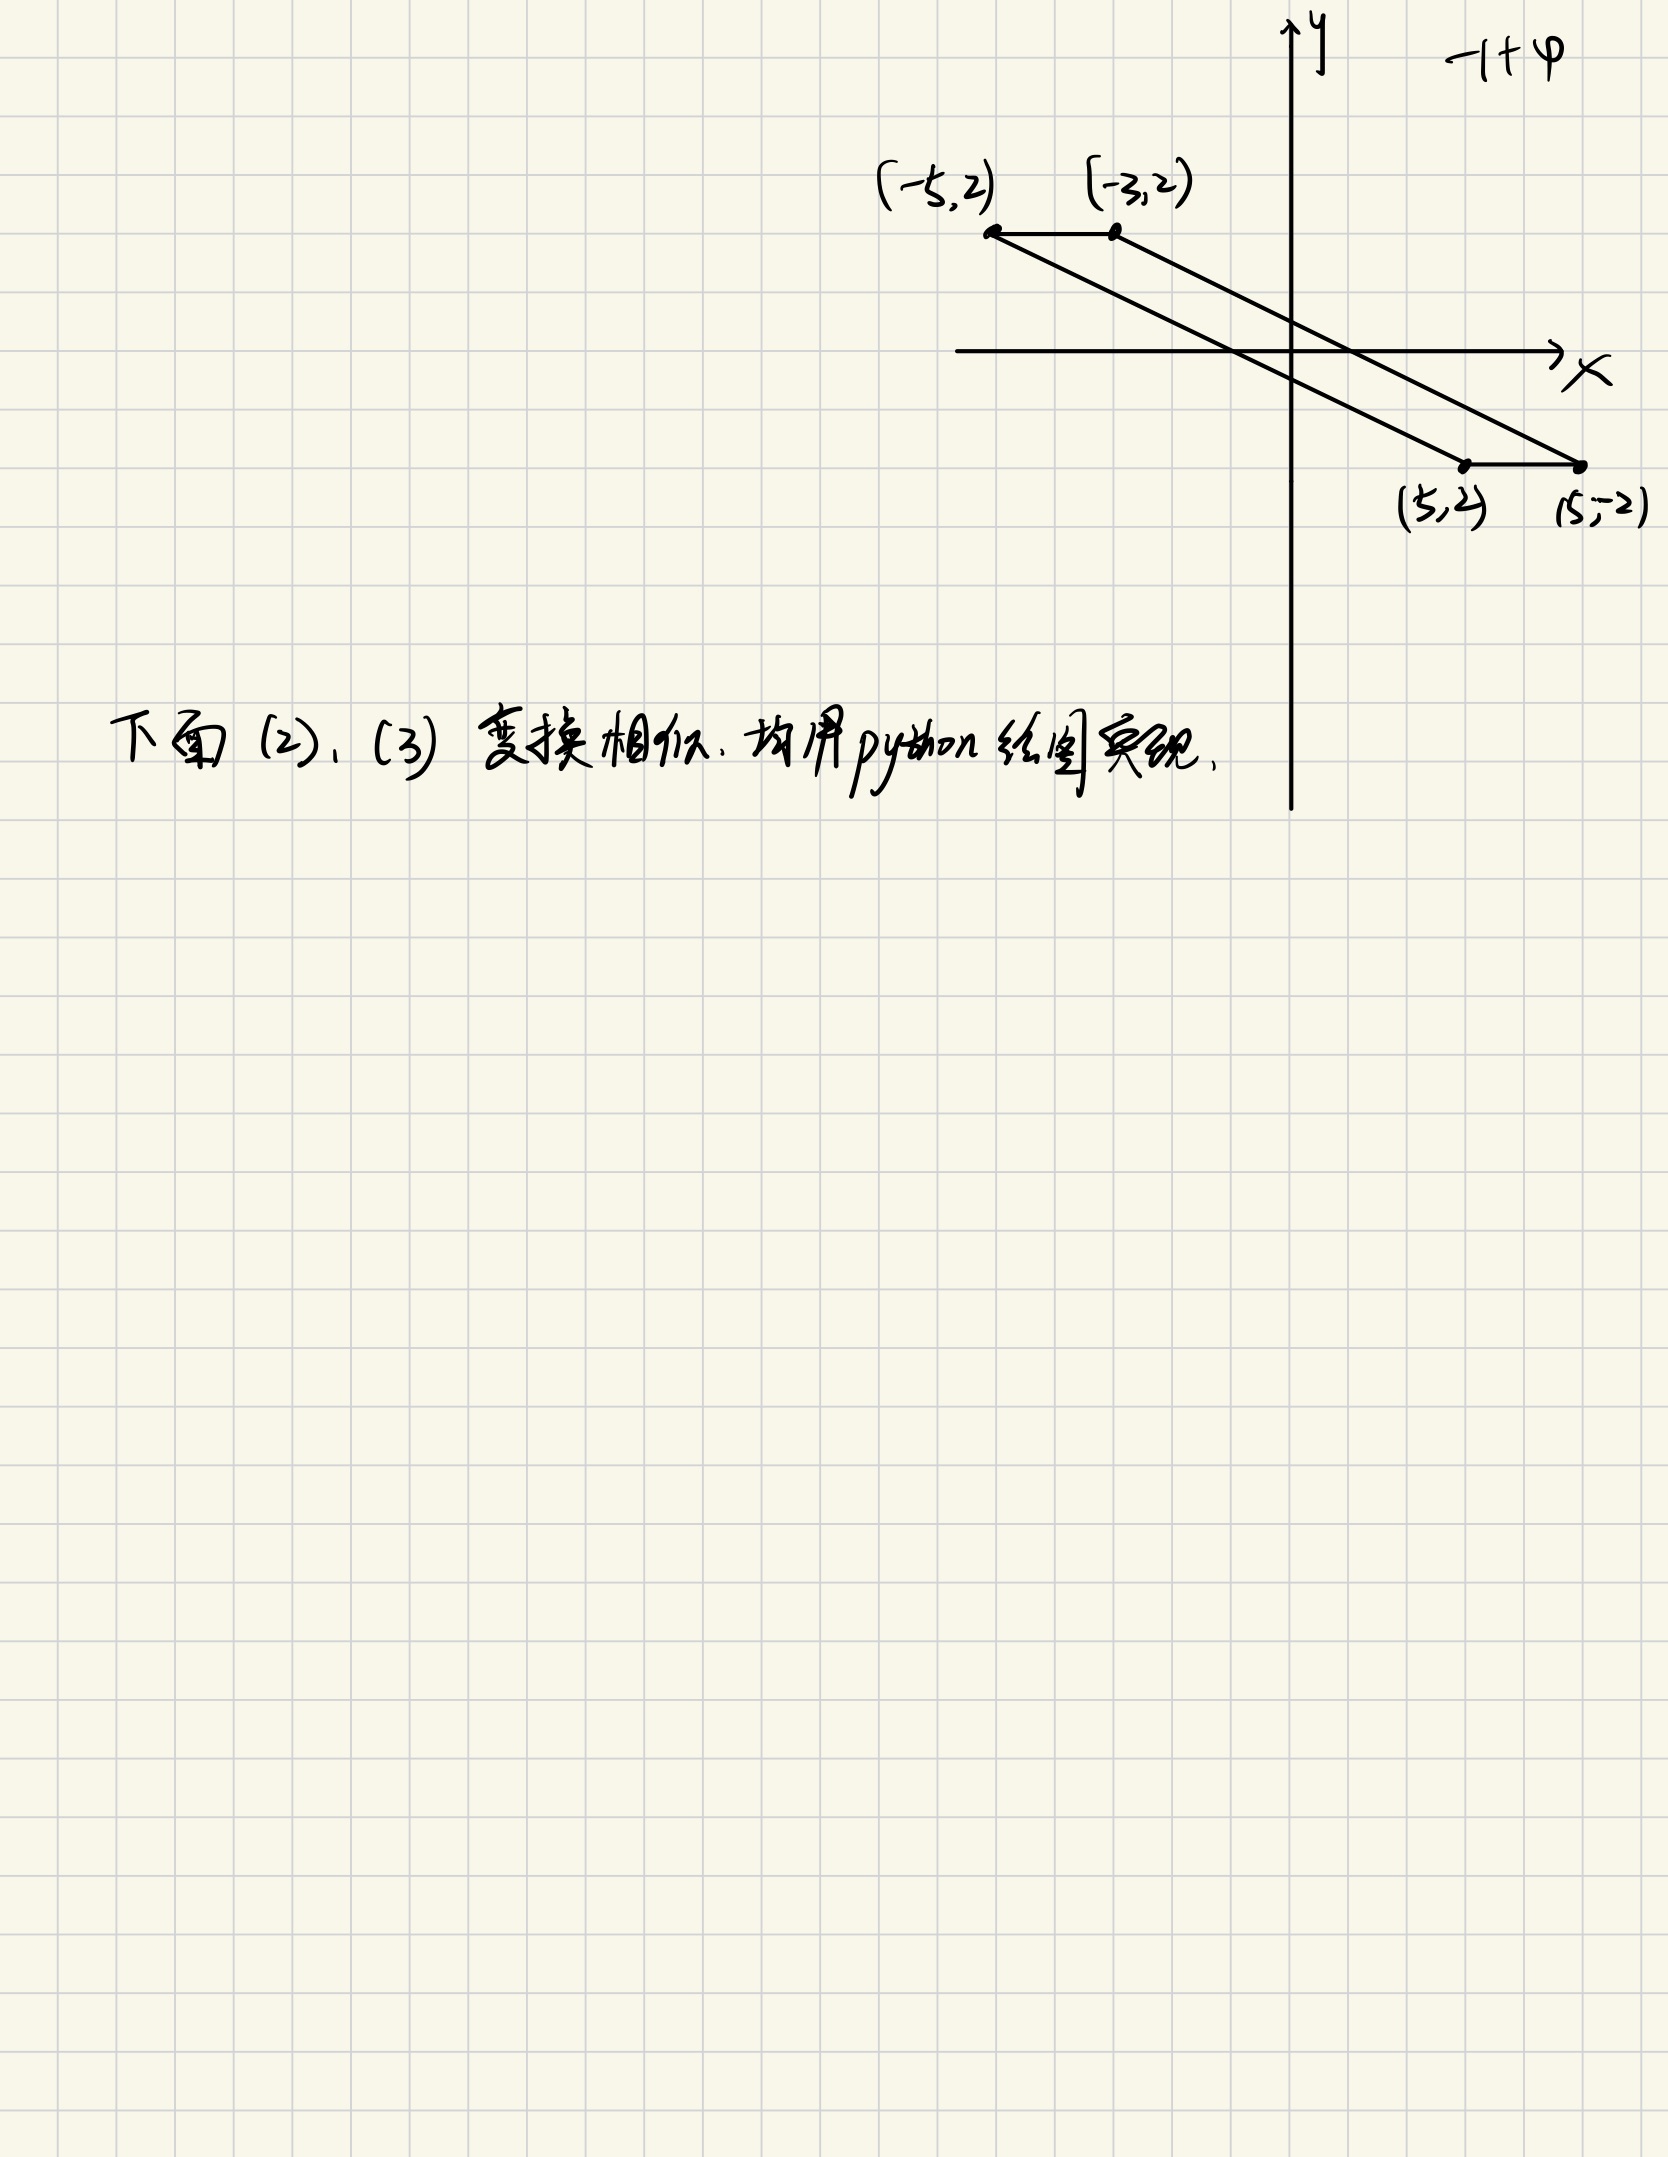 y
-1+φ
(-5,2) (-3,2)
x
(5,2) (5,-2)
下面 (2)、(3) 变换相似.均用python绘图实现、